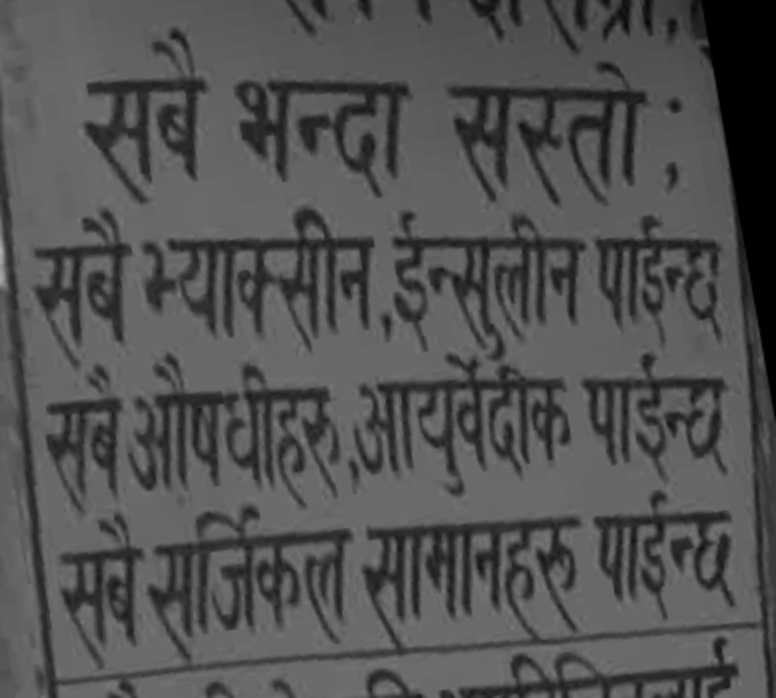 सबै भन्दा सस्तो;
सबै भ्याक्सीन,ईन्सुलीन पाईन्छ
सबै औषधीहरू,आयुर्वेदीक पाईन्छ
सबै सर्जिकल सामानहरू पाईन्छ